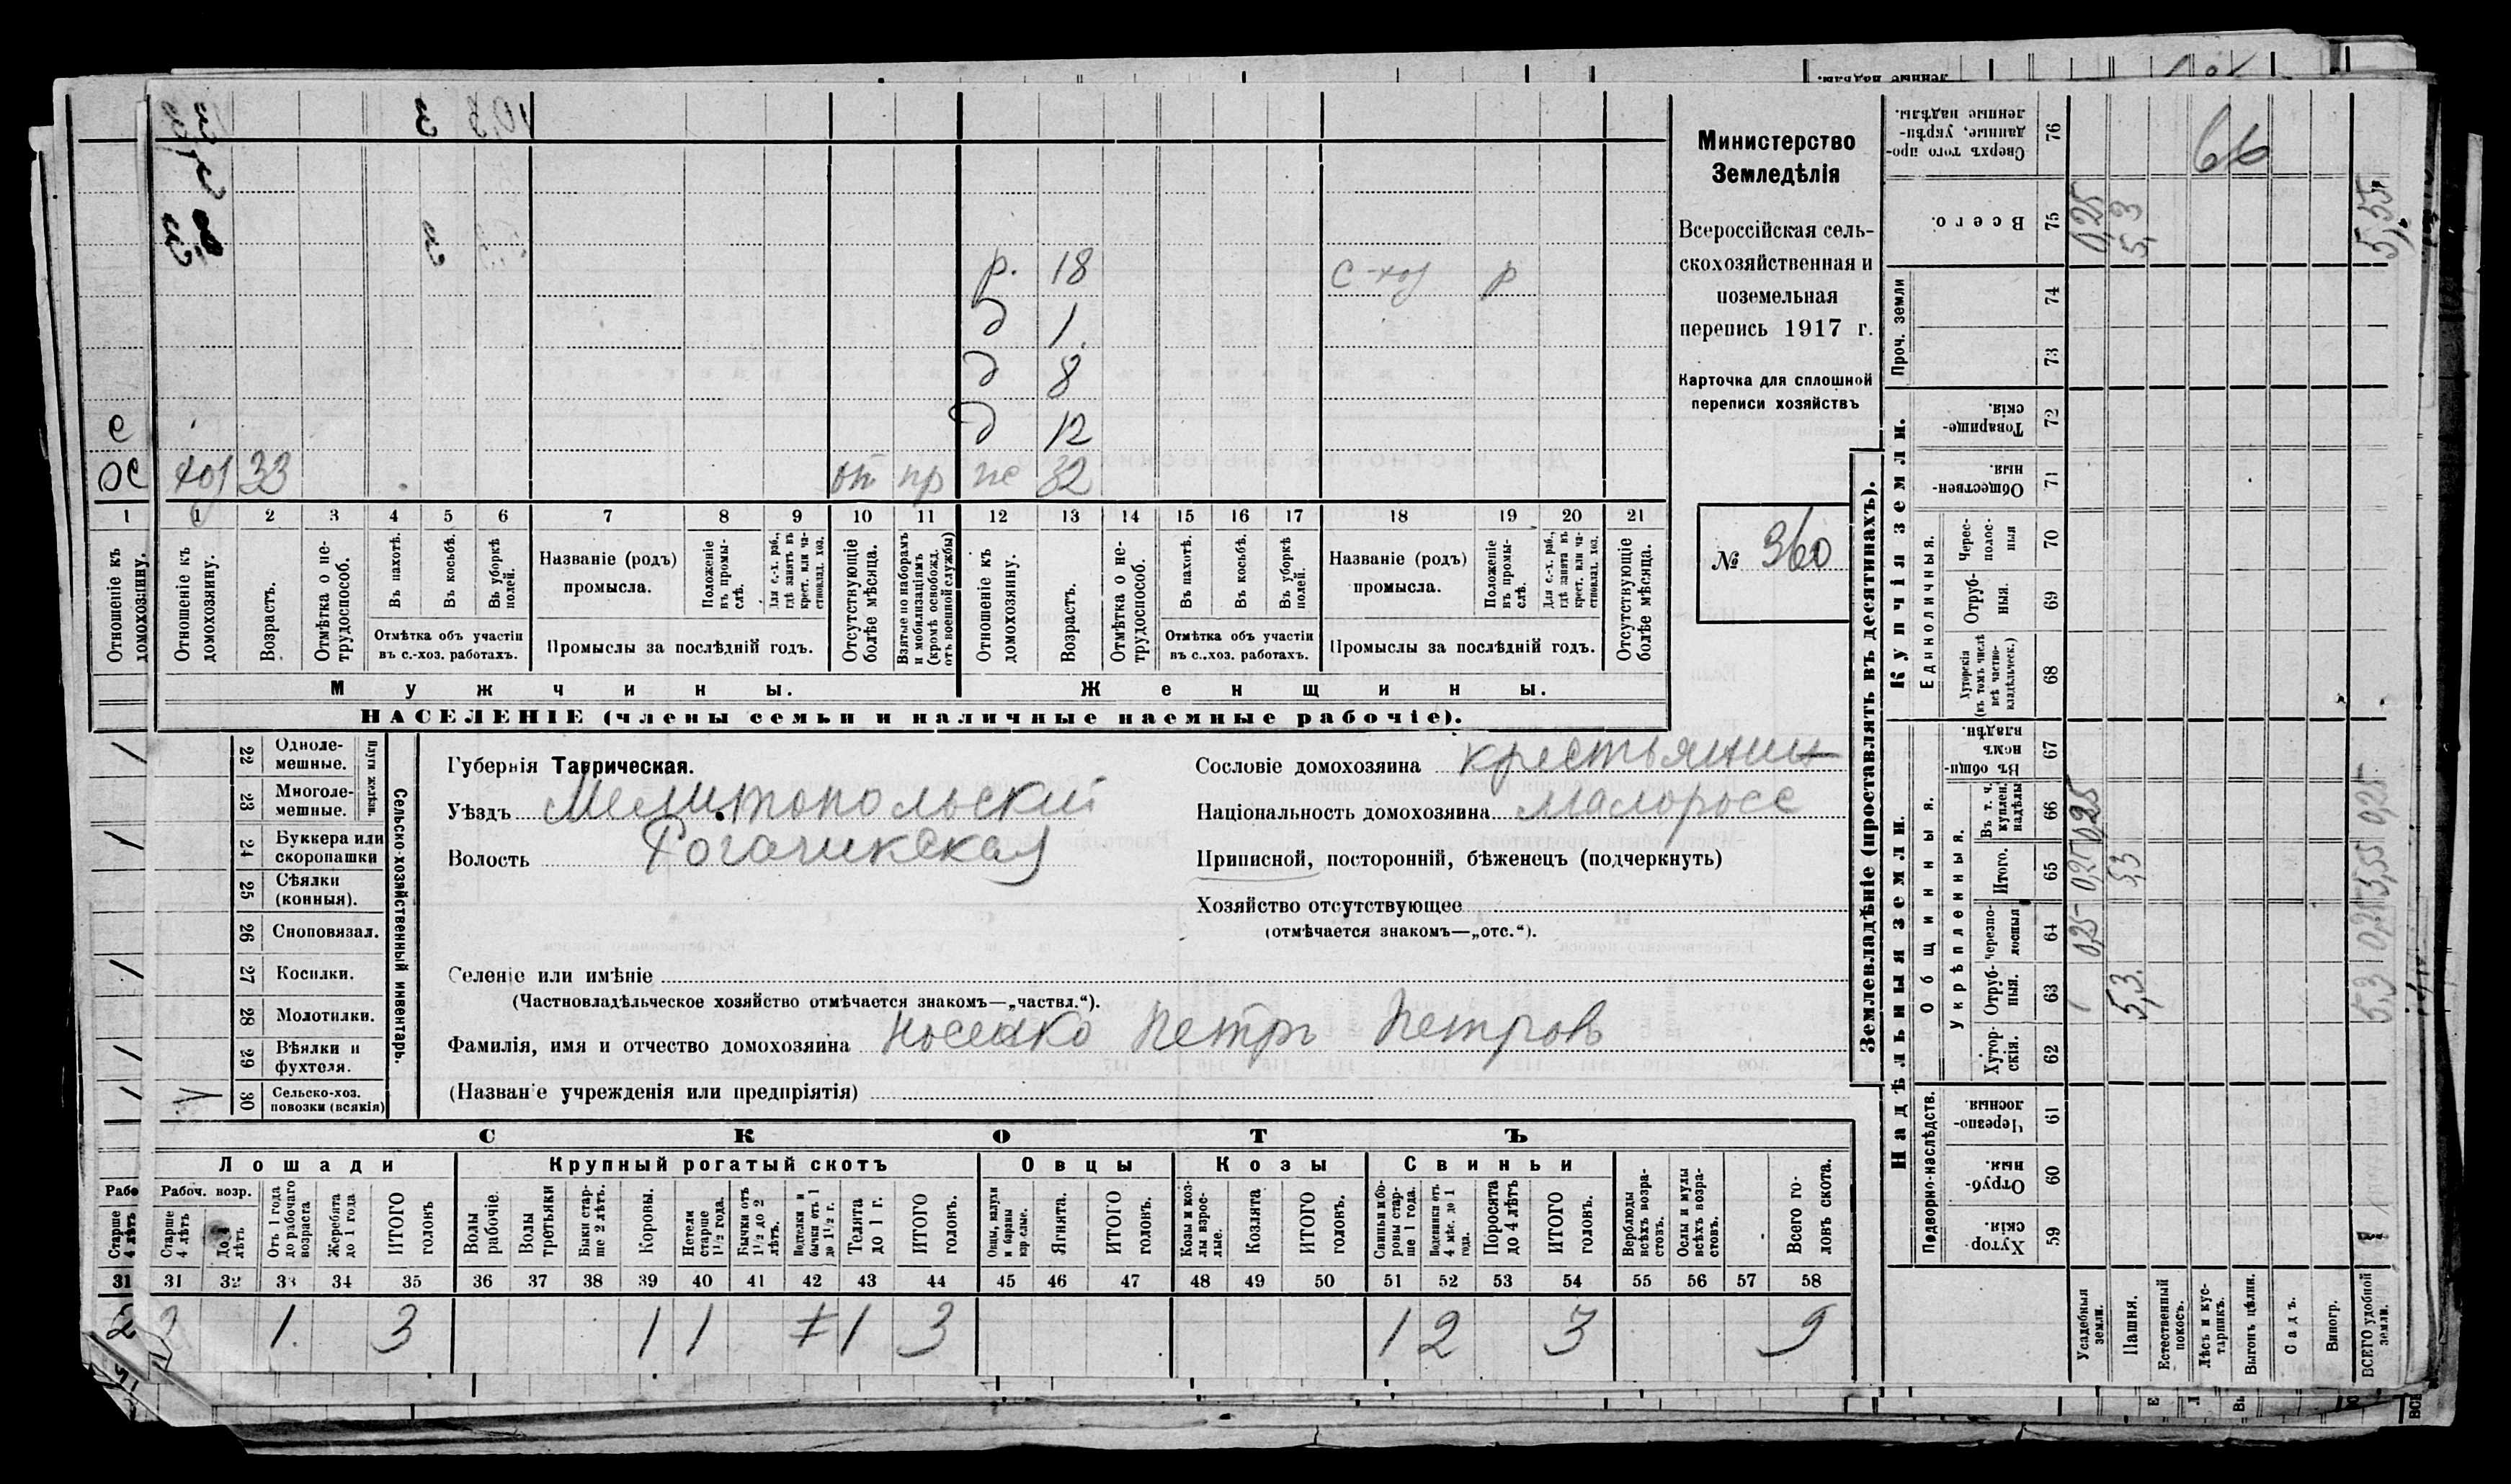 3
р. 18 с-хоз р
д 1
д 8
е д 12
ж хоз 33 от пр ж 32
1 1 2 3 4 5 6 7 8 9 10 11 12 13 14 15 16 17 18 19 20 21
Отношеніе къ домохозяину.
Отношеніе къ домохозяину.
Возрастъ.
Отмѣтка о нетрудоспособ.
Въ пахотѣ.
Въ косьбѣ.
Въ уборкѣ полей.
Отмѣтка объ участіи въ с.-хоз. работахъ.
Названіе (родъ) промысла.
Положеніе въ промыслѣ.
Для с.-х. раб., гдѣ занятъ въ крест. или частновлад. хоз.
Промыслы за послѣдній годъ.
Отсутствующіе болѣе мѣсяца.
Взятые по наборамъ и мобилизаціямъ (кромѣ освобожд. отъ военной службы)
Отношеніе къ домохозяину.
Возрастъ.
Отмѣтка о нетрудоспособ.
Въ пахотѣ.
Въ косьбѣ.
Въ уборкѣ полей.
Отмѣтка объ участіи въ с.-хоз. работахъ.
Названіе (родъ) промысла.
Положеніе въ промыслѣ.
Для с.-х. раб., гдѣ занята въ крест. или частновлад. хоз.
Промыслы за послѣдній годъ.
Отсутствующіе болѣе мѣсяца.
Мужчины. Женщины.
НАСЕЛЕНІЕ (члены семьи и наличные наемные рабочіе).
Министерство
Земледѣлія
Всероссійская сель-
скохозяйственная и
поземельная
перепись 1917 г.
Карточка для сплошной
переписи хозяйствъ
№ 360
22 Одноле-мешные.
23 Многоле-мешные.
24 Буккера или скоропашки
25 Сѣялки (конныя).
26 Сноповязал.
27 Косилки.
28 Молотилки.
29 Вѣялки и фухтеля.
30 Сельско-хоз. повозки (всякія)
Сельско-хозяйственный инвентарь.
Губернія Таврическая.
Уѣздъ Мелитопольский
Волость Рогачикская
Сословіе домохозяина крестьянин
Національность домохозяина малоросс
Приписной, посторонній, бѣженецъ (подчеркнуть)
Хозяйство отсутствующее
(отмѣчается знакомъ—„отс.“).
Селеніе или имѣніе
(Частновладѣльческое хозяйство отмѣчается знакомъ—„частвл.“).
Фамилія, имя и отчество домохозяина Носенко Петръ Петров
(Названіе учрежденія или предпріятія)
СКОТЪ
Лошади Крупный рогатый скотъ Овцы Козы Свиньи
Рабоч. возр.
Старше 4 лѣтъ
Старше 4 лѣтъ
До 4 лѣтъ
Отъ 1 года до рабочаго возраста
Жеребята до 1 года
ИТОГО головъ.
Волы рабочіе.
Волы третьяки
Быки старше 2 лѣтъ.
Коровы.
Нетели старше 1 1/2 года.
Бычки отъ 1 1/2 до 2 лѣтъ.
Подтелки и бычки отъ 1 до 1 1/2 г.
Телята до 1 г.
ИТОГО головъ.
Овцы, валухи и бараны взрослые.
Ягнята.
ИТОГО головъ.
Козы и козлы взрослые.
Козлята
ИТОГО головъ.
Свиньи и боровы старше 1 года.
Подсвинки отъ 4 мѣс. до 1 года.
Поросята до 4 лѣтъ
ИТОГО головъ.
Верблюды всѣхъ возрастовъ.
Ослы и мулы всѣхъ возрастовъ.
Всего головъ скота.
31 31 32 33 34 35 36 37 38 39 40 41 42 43 44 45 46 47 48 49 50 51 52 53 54 55 56 57 58
2 2 1. 3 1 1 1 3 1 2 3 9
Землевладѣніе (проставлять въ десятинахъ).
Надѣльныя земли. Купчія земли.
Подворно-наслѣдств.
Общинныя.
Укрѣпленныя.
Единоличныя.
Проч. земли
Хуторскія 59
Отрубныя. 60
Черезполосныя. 61
Хуторскія. 62
Отрубныя. 63
Черезполосныя 64
Итого. 65
Въ т. ч. куплен. надѣлы 66
Въ общинномъ владѣн. 67
Хуторскія (въ томъ числѣ всѣ частновладѣльческ.) 68
Отрубныя. 69
Чересполосныя 70
Общественныя. 71
Товарищескія. 72
73
74
Всего. 75
Сверхъ того проданные, укрѣпленные надѣлы. 76
Усадебныя земли. 0,25 0,25 0,25 0,25
Пашня. 5,3. 5,3 5,3
Естественный покосъ.
Лѣсъ и кустарникъ.
Выгонъ цѣлин.
Садъ.
Виногр.
ВСЕГО удобной земли. 5,3 0,25 5,55 0,25 5,55
66